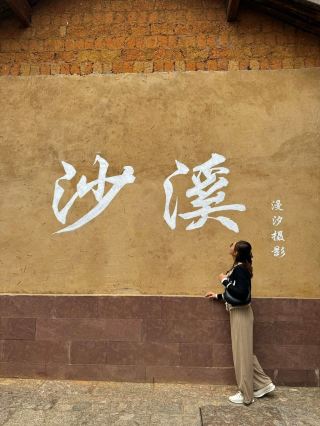 沙溪
漫汐摄影